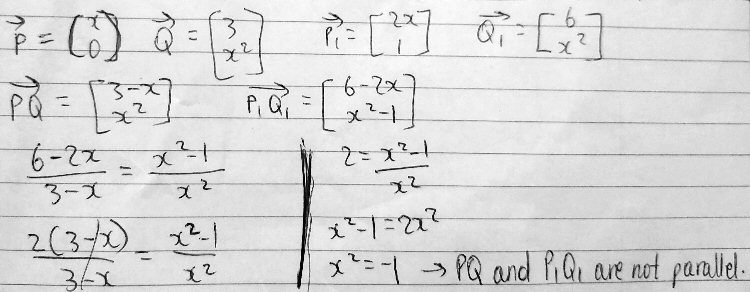 P⃗ = [x 0] Q⃗ = [3 x²] P₁⃗ = [2x 1] Q₁⃗ = [6 x²]
PQ⃗ = [3-x x²] P₁Q₁⃗ = [6-2x x²-1]
(6-2x)/(3-x) = (x²-1)/x²
2(3-x)/(3-x) = (x²-1)/x²
2 = (x²-1)/x²
x²-1 = 2x²
x² = -1 → PQ and P₁Q₁ are not parallel.